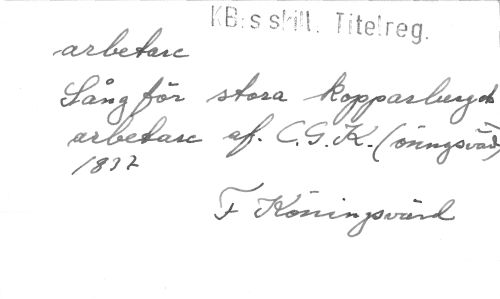 KB:s skill. Titelreg.
arbetare
Sång för stora kopparbergets
arbetare af. C.G.K. (öningsvärd)
1837
F Köningsvärd